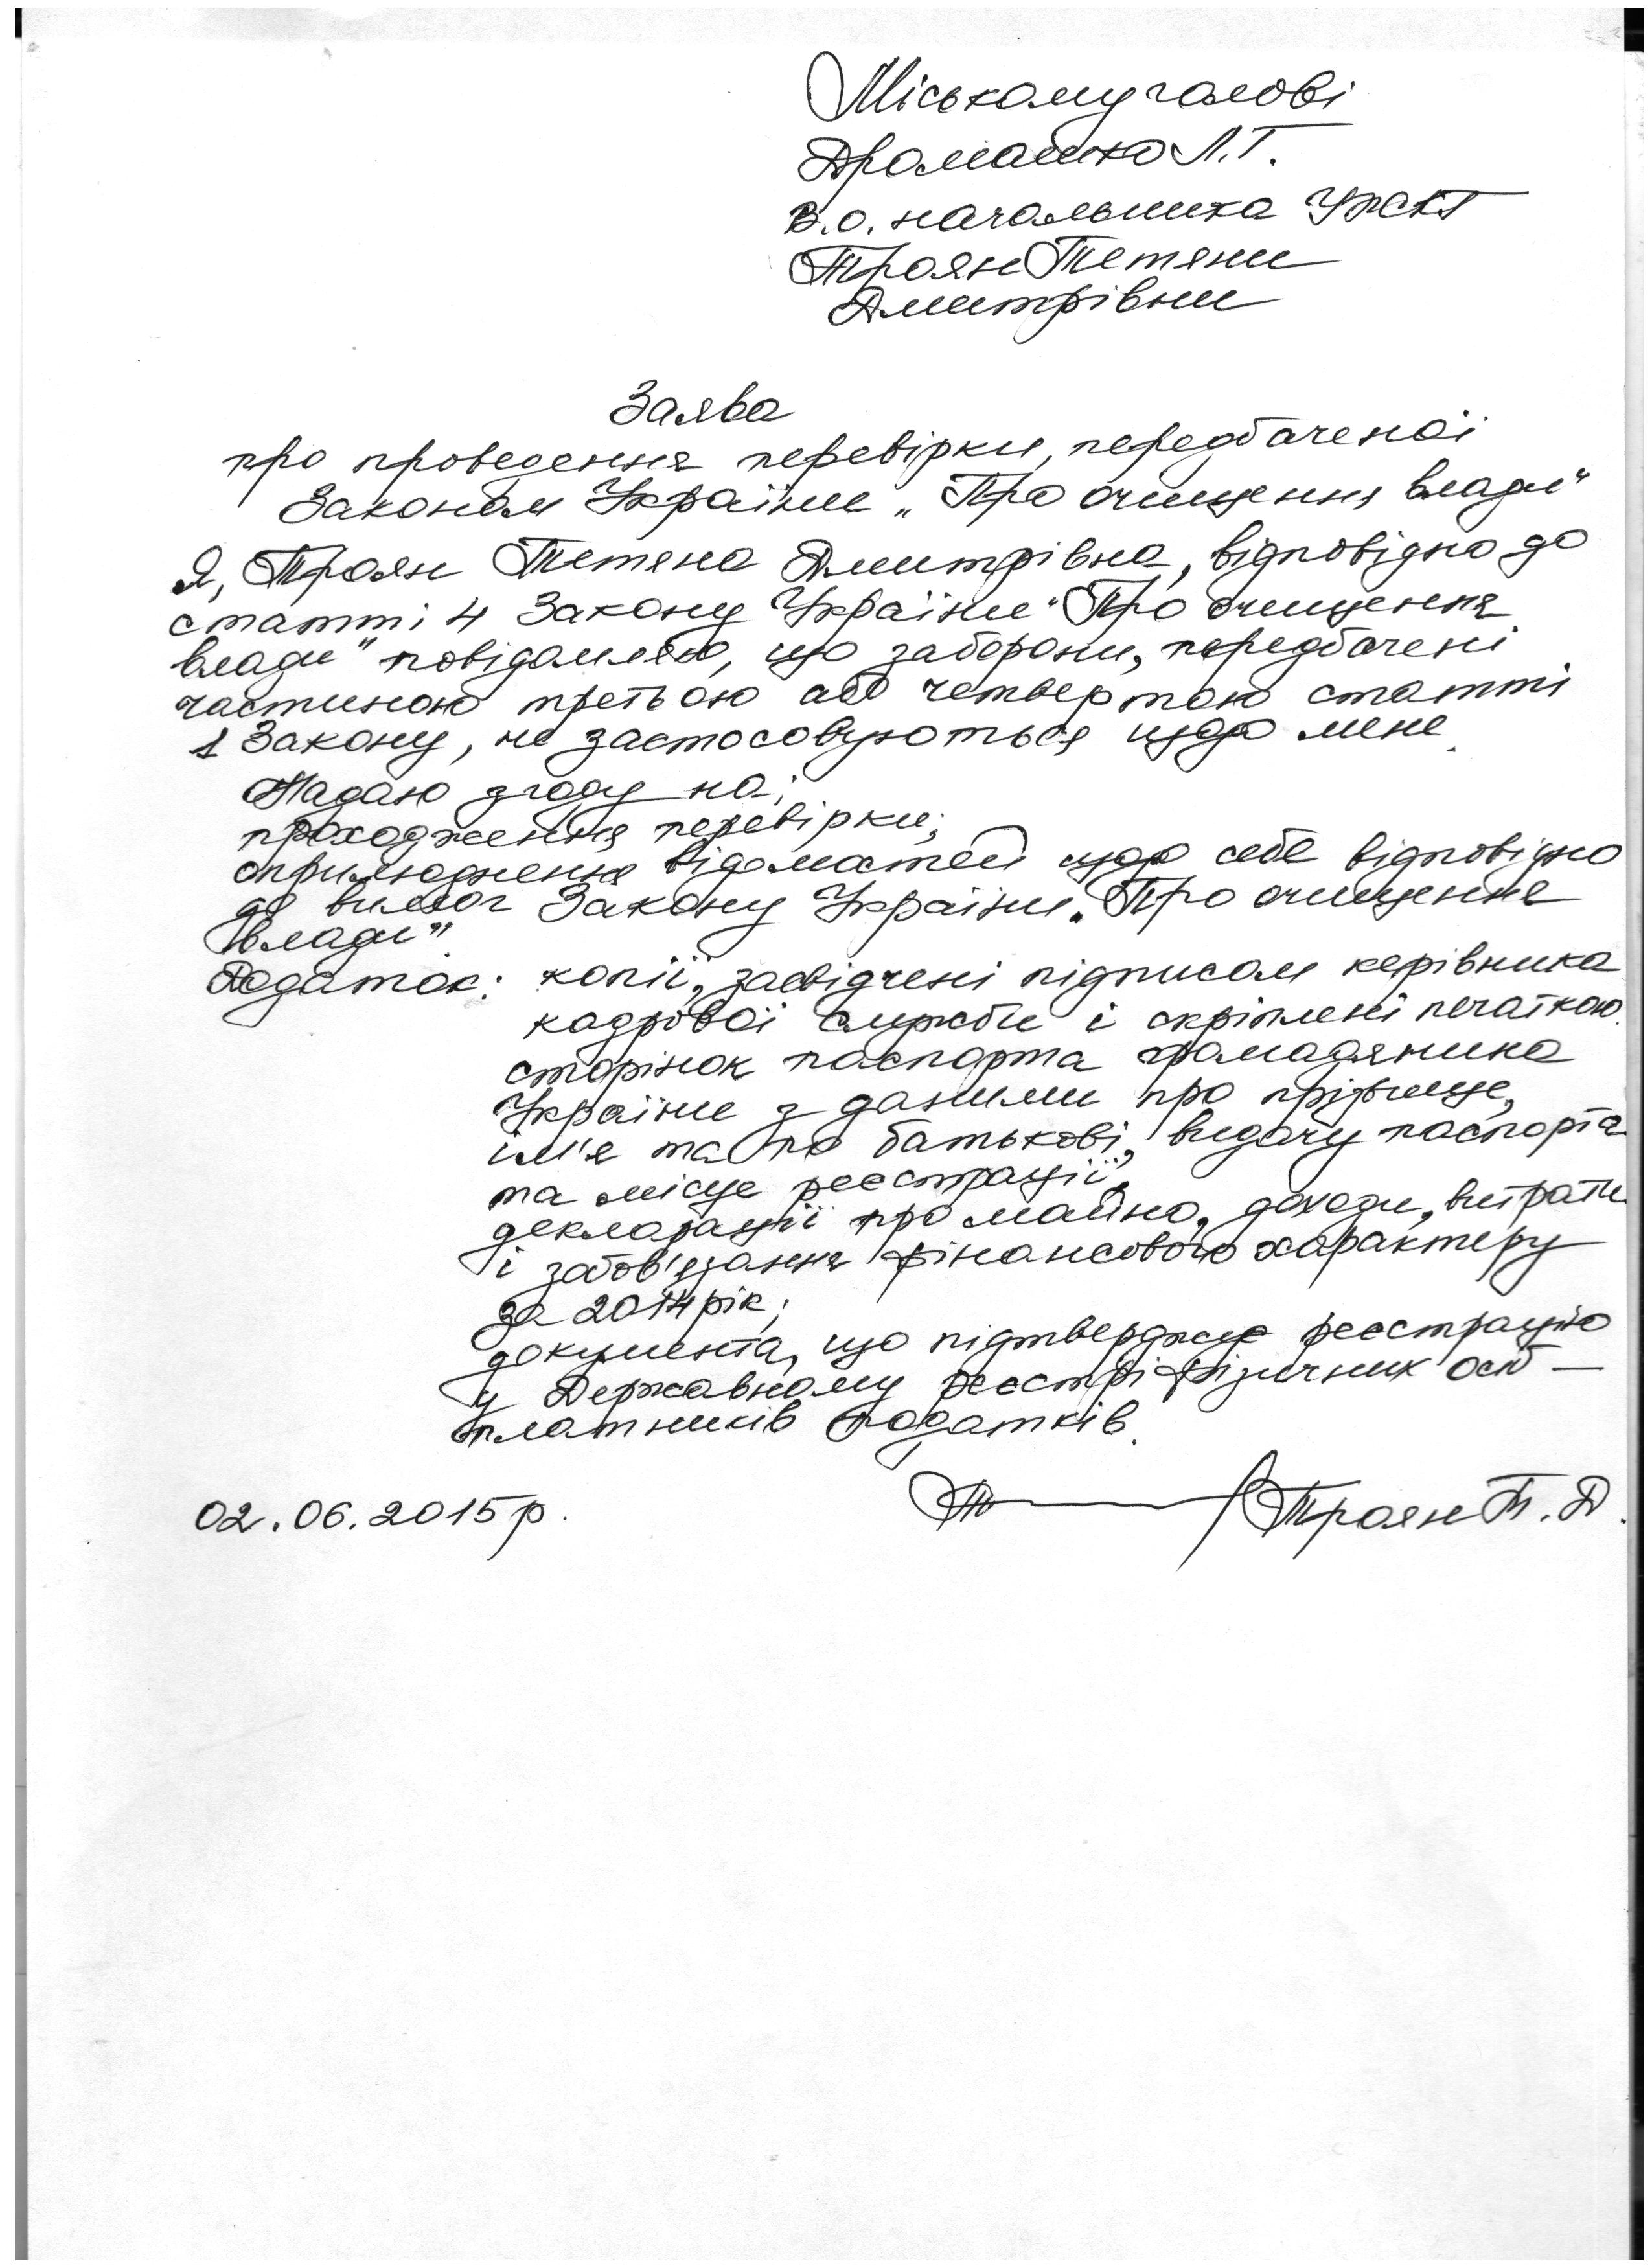 Міському голові
Дромашко Л.Г.
В.о. начальника УЖКГ
Троян Тетяни
Дмитрівни
Заява
про проведення перевірки, передбаченої
Законом України „Про очищення влади"
Я, Троян Тетяна Дмитрівна, відповідно до
статті 4 Закону України "Про очищення
влади" повідомляю, що заборони, передбачені
частиною третьою або четвертою статті
1 Закону, не застосовуються щодо мене.
Надаю згоду на:
проходження перевірки;
оприлюднення відомостей щодо себе відповідно
до вимог Закону України „Про очищення
влади"
Додаток: копії, засвідчені підписом керівника
кадрової служби і скріплені печаткою.
сторінок паспорта громадянина
України з даними про прізвище,
ім'я та по батькові, видачу паспорта
та місце реєстрації,
декларації про майно, доходи, витрати
і забов'язання фінансового характеру
за 2014 рік;
документа, що підтверджує реєстрацію
у Державному реєстрі фізичних осіб —
платників податків.
02.06.2015 р.
Троян Т.Д.